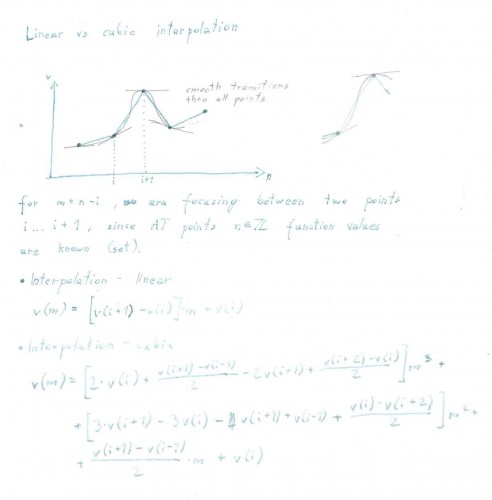 Linear vs cubic interpolation
v
smooth transitions
thru all points
i i+1 n
for m = n-i, we are focusing between two points
i ... i+1, since AT points n∈ℤ function values
are known (set).
• Interpolation - linear
v(m) = [v(i+1) - v(i)]·m + v(i)
• Interpolation - cubic
v(m) = [2·v(i) + (v(i+1)-v(i-1))/2 - 2v(i+1) + (v(i+2)-v(i))/2] m³ +
+ [3·v(i+1) - 3v(i) - v(i+1) + v(i-1) + (v(i)-v(i+2))/2] m² +
+ (v(i+1) - v(i-1))/2 ·m + v(i)